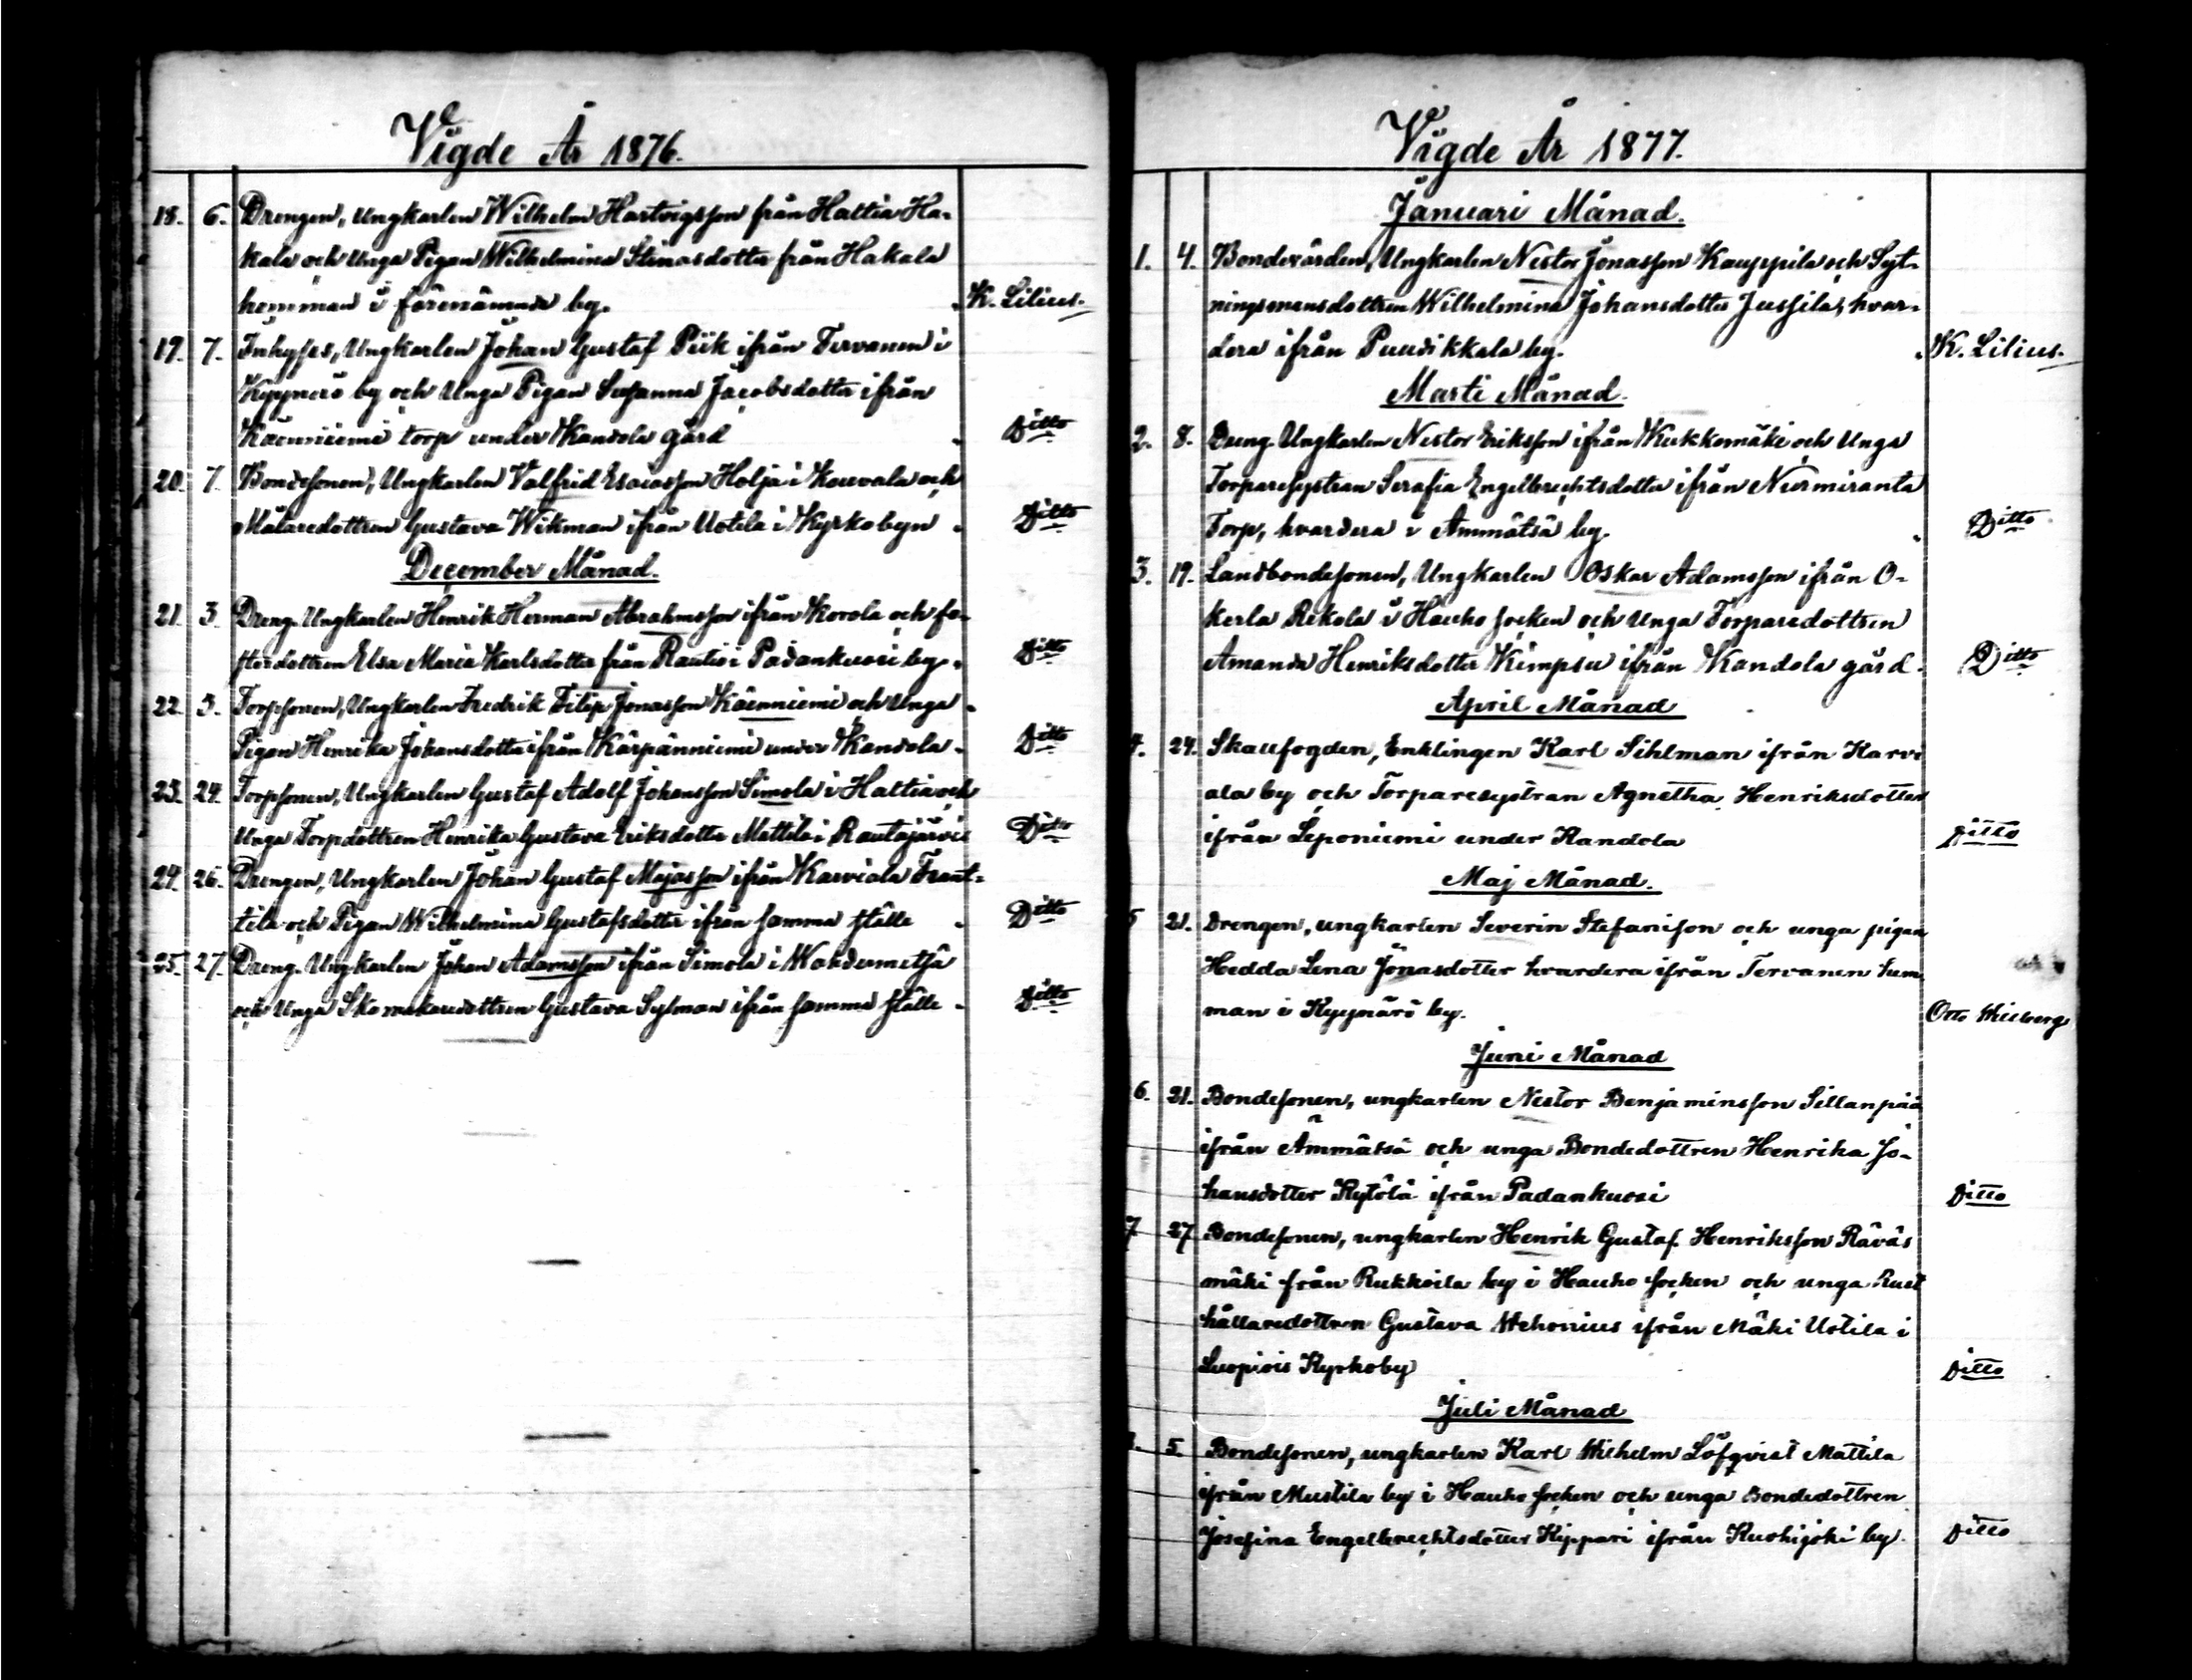 Vigde År 1876.
18. 6. Drengen, Ungkarlen Wilhelm Hartvigsson från Haltia Ha-
kala och Unga Pigan Wilhelmina Stinasdotter från Hakala
hemman i förenämnda by. K. Lilius.
19. 7. Inhyses, Ungkarlen Johan Gustaf Piik ifrån Tervanen i
Kyynerö by och Unga Pigan Susanna Jacobsdotter ifrån
torp under Kandola gård Ditto
20. 7. Bondesonen, Ungkarlen Valfrid Esaiasson Holja i Kouvala och
Målaredottren Gustava Wikman ifrån Uotila i Kyrkobyn Ditto
December Månad.
21. 3. Dreng. Ungkarlen Henrik Herman Abrahmsson ifrån Korola och fo-
sterdottren Elsa Maria Karlsdotter från Rautio i Padankuosi by. Ditto
22. 3. Torpsonen, Ungkarlen Fredrik Filip Jonasson Käenniemi och Unga
Pigan Henrika Johansdotter ifrån Kärpänniemi under Kandola. Ditto
23. 24. Torpsonen, Ungkarlen Gustaf Adolf Johansson Simola i Haltia och
Unga Torpdottren Henrika Gustava Eriksdotter Mattila i Rautajärvi Ditto
24. 26. Drengen, Ungkarlen Johan Gustaf Majasson ifrån Karviala Frant-
tila och Pigan Wilhelmina Gustafsdotter ifrån samma ställe Ditto
25. 27. Dreng. Ungkarlen Johan Adamsson ifrån Simola i
och Unga Skomakaredottren Gustava Sylman ifrån samma ställe Ditto
Vigde År 1877.
Januari Månad.
1. 4. Bondevärden, Ungkarlen Nestor Jonasson Kauppila och Syt-
ningsmansdottren Wilhelmina Johansdotter Jussila, hvar-
dera ifrån Puudikkala by. K. Lilius.
Marti Månad.
2. 8. Dreng. Ungkarlen Nestor Eriksson ifrån Kukkomäki och Unga
Torparesystran Serafia Engelbrechtsdotter ifrån Nurmiranta
Torp, hvardera i Ämmätsä by. Ditto
3. 19. Landbondesonen, Ungkarlen Oskar Adamsson ifrån O-
kerla Rekola i Hauho socken och Unga Torparedottren
Amanda Henriksdotter Kimpsu ifrån Kandola gård. Ditto
April Månad
4. 24. Skaufogden, Enklingen Karl Sihlman ifrån Karvi
ala by och Torparesystran Agnetha Henriksdotter
ifrån Leponiemi under Kandola Ditto
Maj Månad.
5 21. Drengen, ungkarlen Severin Stefanison och unga pigan
Hedda Lena Jonasdotter hvardera ifrån Tervanen hem
man i Kyynärö by. Otto
Juni Månad
6. 21. Bondesonen, ungkarlen Nestor Benjaminsson Sillanpää
ifrån Ämmätsä och unga Bondedottren Henrika Jo-
hansdotter Kytölä ifrån Padankuosi Ditto
7 27 Bondesonen, ungkarlen Henrik Gustaf Henriksson Räväs
mäki från Rukkoila by i Hauho socken och unga Rust
hållaredottren Gustava Wehonius ifrån Mäki Uotila i
Luopiois Kyrkoby Ditto
Juli Månad
5. Bondesonen, ungkarlen Karl Wilhelm Löfqvist Mattila
ifrån Mustila by i Hauho socken och unga Bondedottren
Josefina Engelbrechtsdotter Kippari ifrån Kuohijoki by. Ditto